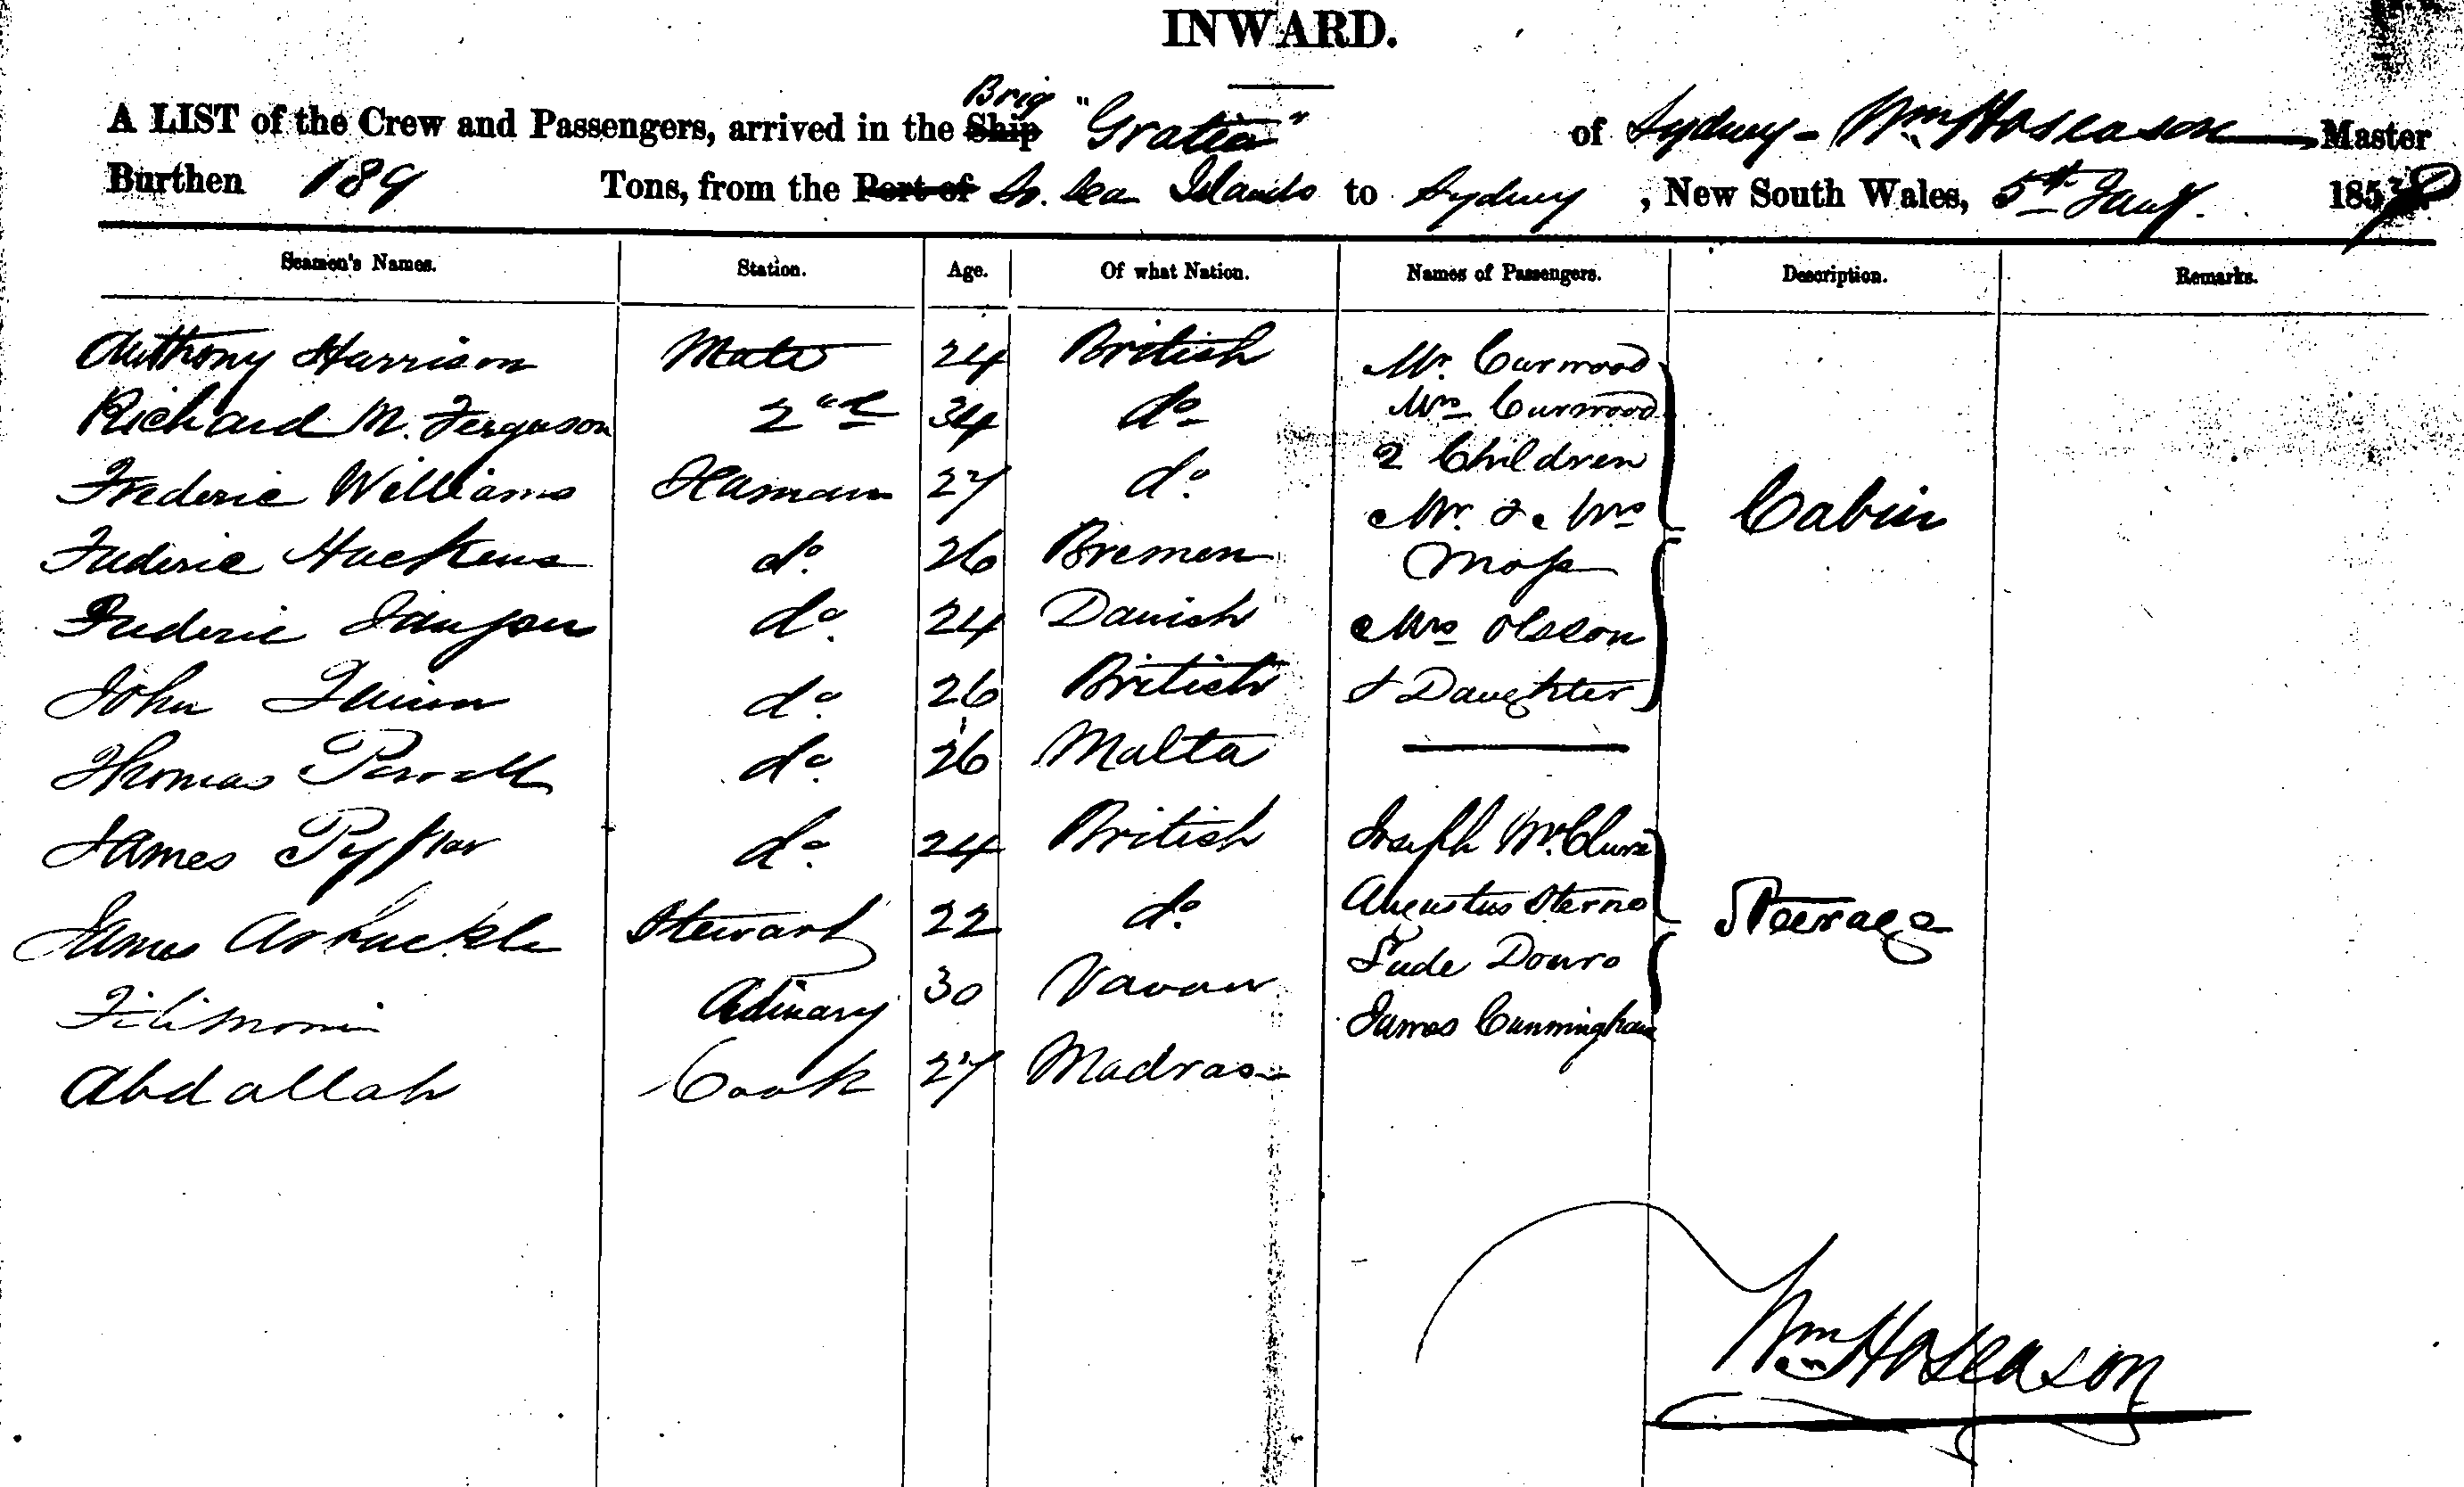 INWARD.
A LIST of the Crew and Passengers, arrived in the Ship Brig "Gratia" of Sydney - Wm Hoseason Master
Burthen 189 Tons, from the Port of So. Sea Islands to Sydney, New South Wales, 5th Jany. 185
Seamen's Names. Station. Age. Of what Nation. Names of Passengers. Description. Remarks.
Anthony Harrison Mate 24 British Mr. Curwood
Richard M. Ferguson 2nd 34 do Mrs Curwood
2 Children
Frederic Williams Seaman 27 do. Mr. & Mrs Cabin
Frederic Huckens do. 26 Bremen Moss
Frederic do. 24 Danish Mrs Olsson
John Quinn do. 26 British & Daughter
Thomas do. 26 Malta
James do. 24 British Joseph McClure
James Arbuckle Steward 22 do. Augustus Sterne Steerage
Filimoni Odinary 30 Vavau Douro
James Cunningham
Abdallah Cook 27 Madras
Wm Hoseason